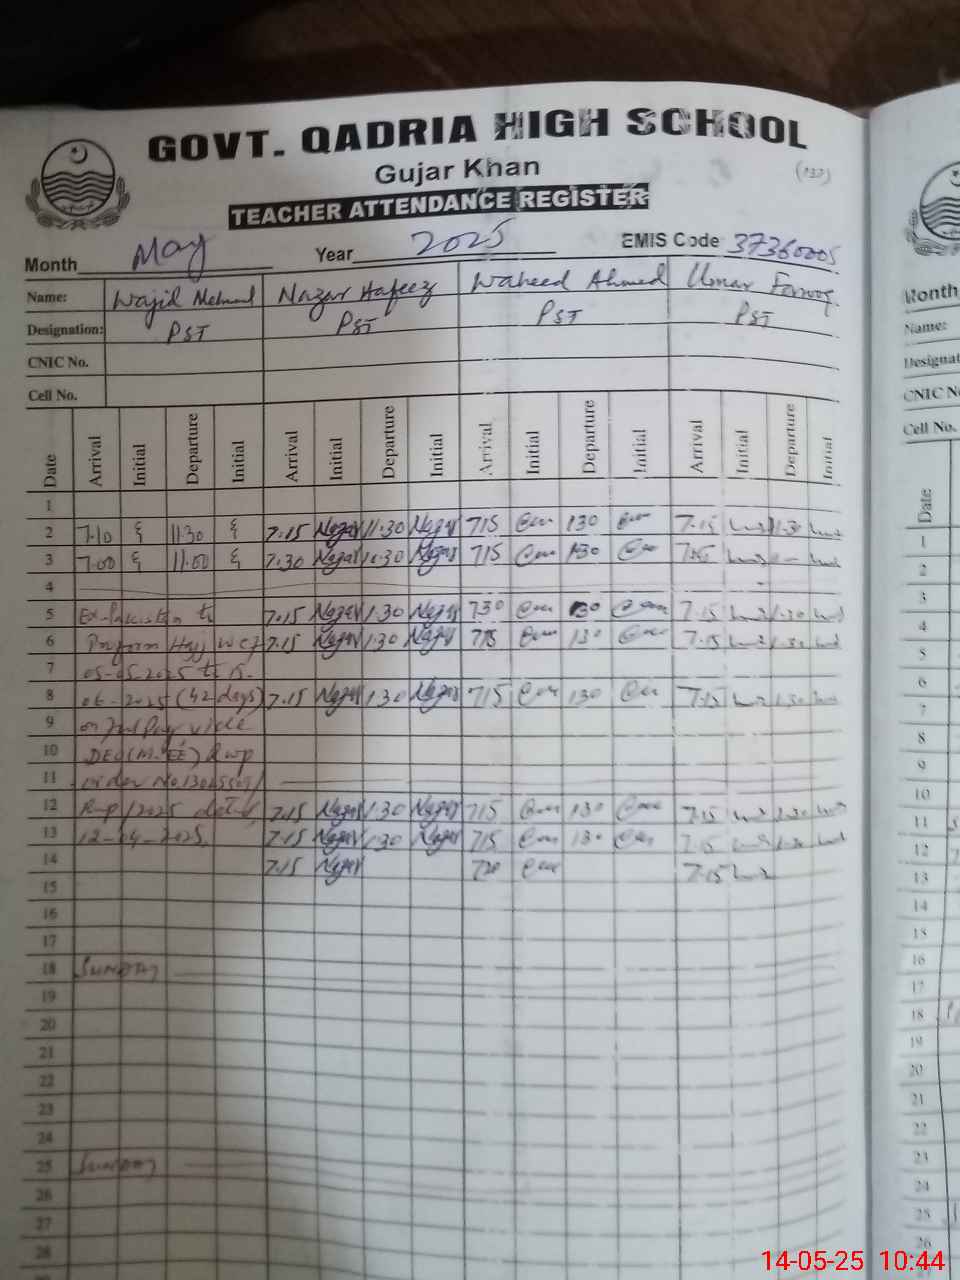 GOVT. QADRIA HIGH SCHOOL
Gujar Khan
(137)
TEACHER ATTENDANCE REGISTER
Month May Year 2025 EMIS Code 37360005
Name: Wajid Mehmood Nazar Hafeez Waheed Ahmed Umar Farooq
Designation: PST PST PST PST
CNIC No.
Cell No.
Date Arrival Initial Departure Initial Arrival Initial Departure Initial Arrival Initial Departure Initial Arrival Initial Departure Initial
1
2 7.10 11.30 7.15 Nazar 11.30 Nazar 715 130 7.15 1.30
3 7.00 11.00 7.30 Nazar 11.30 Nazar 715 130 7.15
4
5 Ex-Pakistan to 7.15 Nazar 1.30 Nazar 730 130 7.15 1.30
6 Perform Hajj wef 7.15 Nazar 1.30 Nazar 715 130 7.15 1.30
7 05-05-2025 to 15-
8 06-2025 (42 days) 7.15 Nazar 1.30 Nazar 715 130 7.15 1.30
9 on full Pay vide
10 DEO (M.EE) Rwp
11 order No.
12 Rwp/2025 dated 7.15 Nazar 1.30 Nazar 715 130 7.15 1.30
13 12-04-2025. 7.15 Nazar 1.30 Nazar 715 130 7.15 1.30
14 7.15 Nazar 720 7.15
15
16
17
18 SUNDAY
19
20
21
22
23
24
25 SUNDAY
26
27
28
Month
Name:
Designat
CNIC N
Cell No.
Date
1
2
3
4
5
6
7
8
9
10
11
12
13
14
15
16
17
18
19
20
21
22
23
24
25
26
14-05-25 10:44